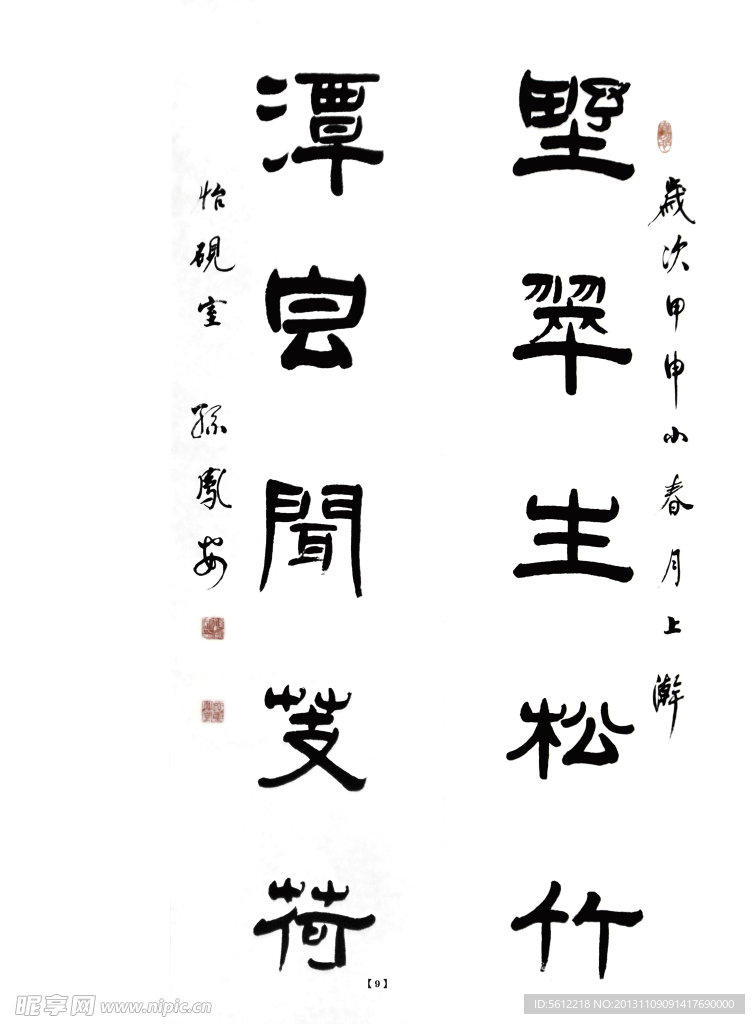 歲次甲申小春月上澣
野翠生松竹
潭香聞芰荷
怡硯室 孫鳳
【9】
昵享网 www.nipic.cn
ID:5612218 NO:20131109091417690000